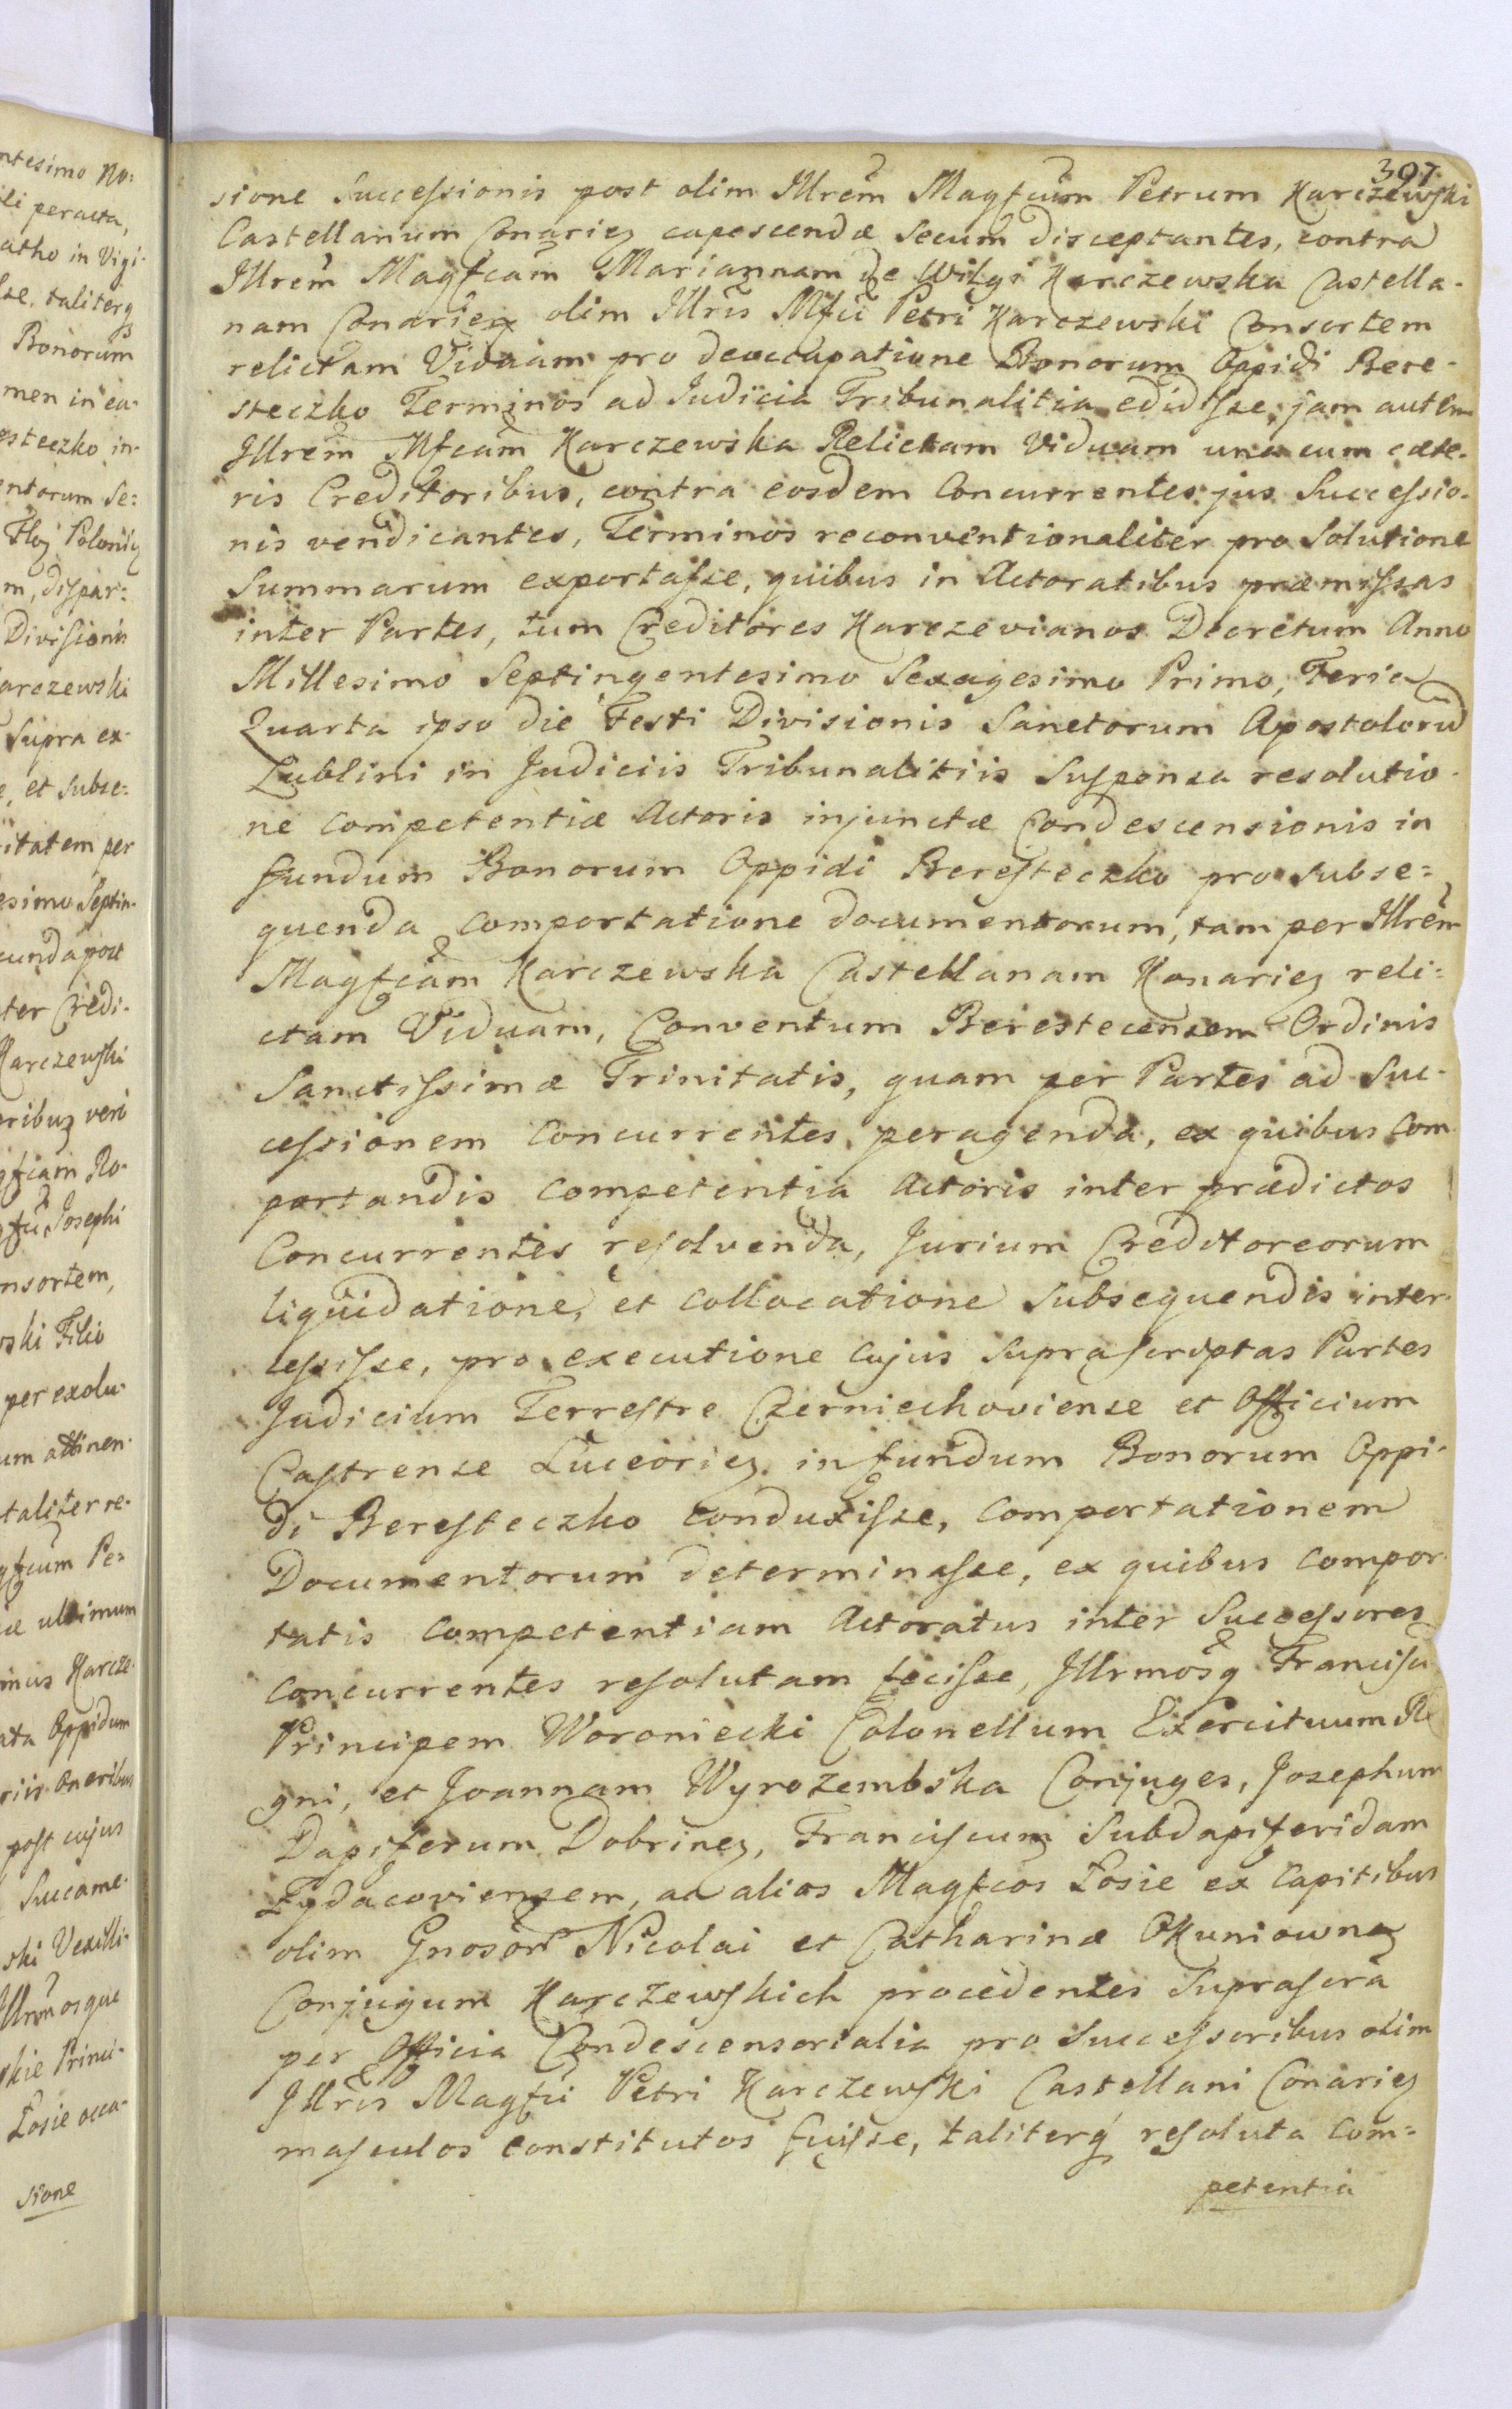 ntesimo No:
li peracta,
atho in Vigi-
lse, taliterq
Bonorum
men in ea-
esteczko in-
entorum Se:
Flg Polonię
m, dispar:
Divisionis
arczewski
Supra ex-
e, et subse:
itatem per
esimo Septin-
cunda post
ter Credi-
Karczewski
ribus veri
gfcam Ro-
gfci Josephi
nsortem,
ski Filio
per exolu-
um attinen-
taliter re-
gfcum Pe=
æ ultimum
inus Karcze-
ata Oppidum
riis Oneribus
post cujus
Succame-
ski Vexilli-
Illrmosque
skie Princi-
Łosie occa-
sione
307.
sione Successionis post olim Illrem Magfcum Petrum Karczewski
Castellanum Conarieñ capescendæ Secum disceptantes, contra
Illrem Magfcam Mariannam de Wilgi Karczewska Castella-
nam Conarieñ olim Illris Mfci Petri Karczewski Consortem
relictam Viduam pro deoccupatione Bonorum Oppidi Bere-
steczko Terminos ad Judicia Tribunalitia edidisse, jam autem
Illrem Mfcam Karczewska Relictam Viduam una cum cæte-
ris Creditoribus, contra eosdem Concurrentes jus Successio-
nis vendicantes, Terminos reconventionaliter pro Solutione
Summarum exportasse, quibus in Actoratibus præmissas
inter Partes, tum Creditores Karczevianos Decretum Anno
Millesimo Septingentesimo Sexagesimo Primo, Feria
Quarta ipso die Festi Divisionis Sanctorum Apostolorũ
Lublini in Judiciis Tribunalitiis Suspensa resolutio-
ne competentiæ Actoris injunctæ Condescensionis in
fundum Bonorum Oppidi Beresteczko pro subse=
quenda comportatione documentorum, tam per Illrem
Magfcam Karczewska Castellanam Konarieñ reli:
ctam Viduam, Conventum Berestecensem Ordinis
Sanctissimæ Trinitatis, quam per Partes ad Suc-
cessionem concurrentes, peragenda, ex quibus com
portandis competentia Actoris inter prædictos
Concurrentes resolvenda, Jurium Creditoreorum
liquidatione, et collocatione subsequendis inter-
cessisse, pro executione cujus suprascriptas Partes
Judicium Terrestre Czerniechoviense et Officium
Castrense Luceorieñ in fundum Bonorum Oppi-
di Beresteczko conduxisse, Comportationem
Documentorum determinasse, ex quibus compor-
tatis competentiam Actoratus inter Successores
concurrentes resolutam fecisse, Illrmosq Franciscũ
Principem Woroniecki Colonellum Exercituum Re
gni, et Joannam Wyrozembska Conjuges, Josephum
Dapiferum Dobrineñ, Franciscum Subdapiferidam
Zydacoviensem, ac alios Magfcos Łosie ex Capitibus
olim Gnosor̃ Nicolai et Catharinæ Okuniowna
Conjugum Karczewskich procedentes Suprascra
per Officia Condescensorialia pro Successoribus olim
Illris Magfci Petri Karczewski Castellani Conarieñ
masculos constitutos fuisse, taliterq́ resoluta Com=
petentia